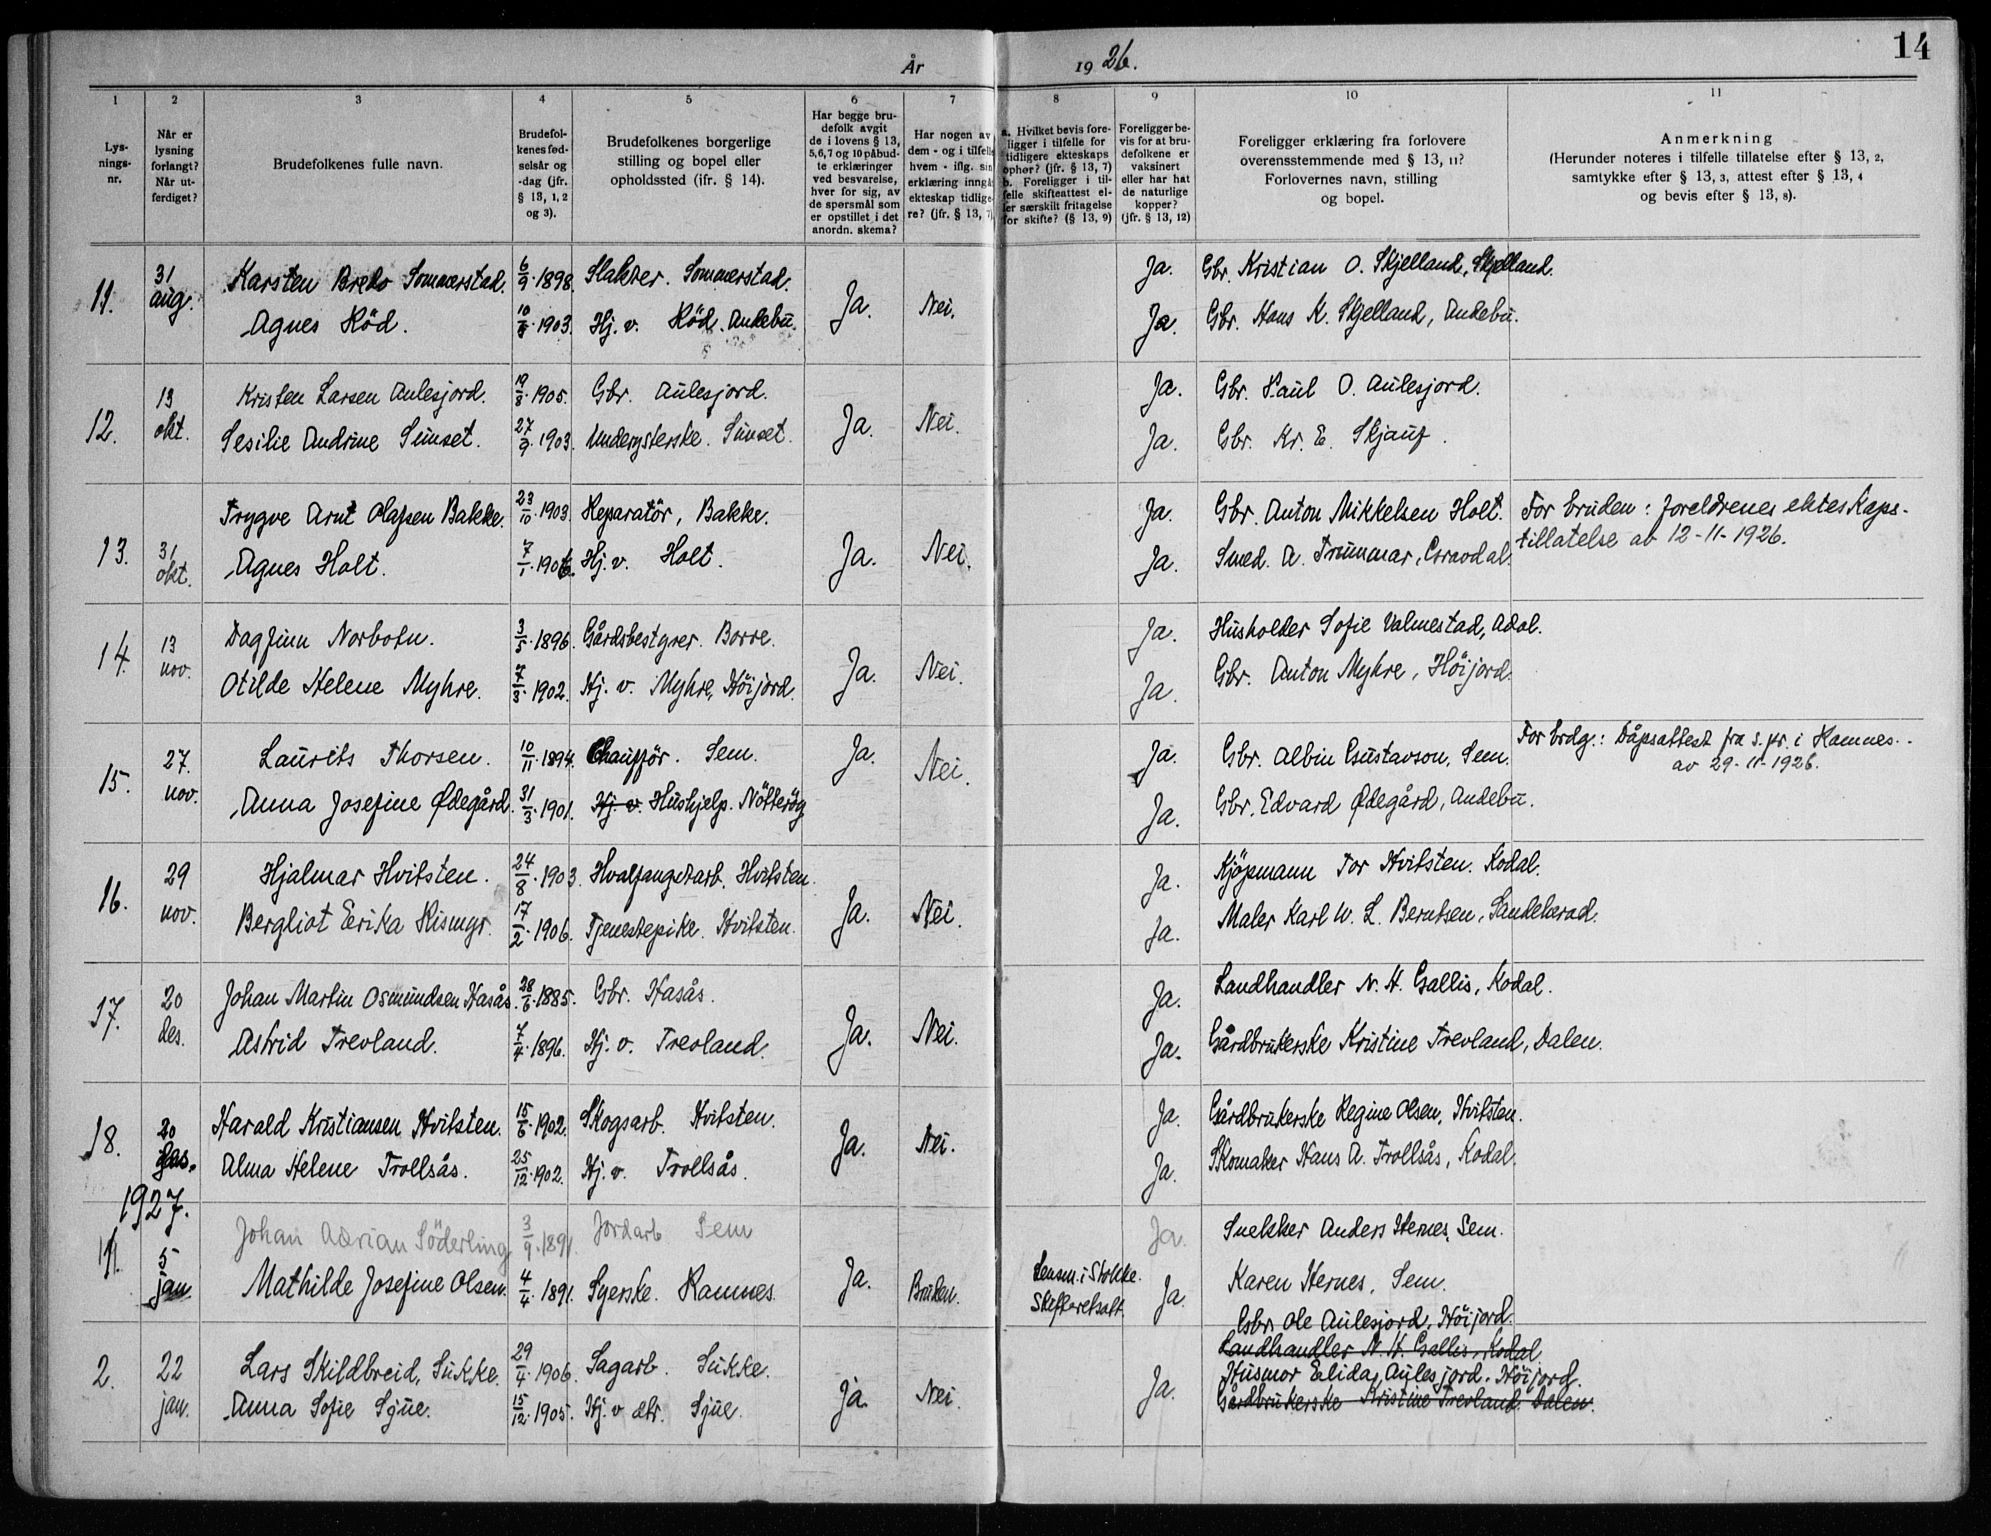 År 1926.
14
1
Lys-
nings-
nr.
2
Når er
lysning
forlangt?
Når ut-
ferdiget?
3
Brudefolkenes fulle navn.
4
Brudefol-
kenes fød-
selsår og
-dag (jfr.
§ 13, 1, 2
og 3).
5
Brudefolkenes borgerlige
stilling og bopel eller
opholdssted (ifr. § 14).
6
Har begge bru-
defolk avgit
de i lovens § 13,
5,6,7 og 10 påbud-
te erklæringer
ved besvarelse,
hver for sig, av
de spørsmål som
er opstillet i det
anordn. skema?
7
Har nogen av
dem - og i tilfelle
hvem - iflg. sin
erklæring inngå
ekteskap tidlige-
re? (jfr. § 13, 7)
8
a. Hvilket bevis fore-
ligger i tilfelle for
tidligere ekteskaps
ophør? (jfr. § 13, 7)
b. Foreligger i til-
felle skifteattest el-
ler særskilt fritagelse
for skifte? (§ 13, 9)
9
Foreligger be-
vis for at bru-
defolkene er
vaksinert
eller har hat
de naturlige
kopper?
(jfr. § 13, 12)
10
Foreligger erklæring fra forlovere
overensstemmende med § 13, 11?
Forlovernes navn, stilling
og bopel.
11
Anmerkning
(Herunder noteres i tilfelle tillatelse efter § 13, 2,
samtykke efter § 13, 3, attest efter § 13, 4
og bevis efter § 13, 8).
11. 31 aug. Karsten Bredo Sommerstad. 6/9 1898. Slakter. Sommerstad. Ja. Nei. Ja. Gbr. Kristian O. Skjelland, Skjelland.
Agnes Röd. 1903. Hj. v. Röd. Andebu. Ja. Gbr. Hans K. Skjelland, Andebu.
12. 13 okt. Kristen Larsen Aulesjord. 19/8 1905. Gbr. Aulesjord. Ja. Nei. Ja. Gbr. Paul O. Aulesjord.
Sesilie Andrine Sunset. 27/9 1903. Underysterske. Sunset. Ja. Gbr. Kr. E. Skjauf.
13. 31 okt. Trygve Arnt Olafsen Bakke. 23/10 1903. Reparatör, Bakke. Ja. Nei. Ja. Gbr. Anton Mikkelsen Holt. For bruden: foreldrenes ekteskaps-
tillatelse av 12-11-1926.
Agnes Holt. 7/1 1906. Hj. v. Holt. Ja. Smed. A. Trummar, Gravdal.
14. 13 nov. Dagfinn Norbotn. 3/5 1896. Gårdsbestyrer. Borre. Ja. Nei. Ja. Husholder Sofie Valmestad, Adal.
Otilde Helene Myhre. 7/3 1902. Hj. v. Myhre, Höijord. Ja. Gbr. Anton Myhre, Höijord.
15. 27. nov. Laurits Thorsen. 10/11 1894. Chaufför. Sem. Ja. Nei. Ja. Gbr. Albin Gustavson, Sem. For brdg.: Dåpsattest fra s. pr. i Ramnes.
av 29-11-1926.
Anna Josefine Ødegård. 31/3 1901. Hj. v. Hushjelp. Nötteröy Ja. Gbr. Edvard Ødegård, Andebu.
16. 29 nov. Hjalmar Hvitsten. 24/8 1903. Hvalfangstarb. Hvitsten. Ja. Nei. Ja. Kjöpmann Tor Hvitsten. Kodal.
Bergliot Erika Rismyr. 17/2 1906. Tjenestepike. Hvitsten. Ja. Maler Karl W. L. Berntsen, Sandeherad.
17. 20 des. Johan Martin Osmundsen Hasås. 28/6 1885. Gbr. Hasås. Ja. Nei. Ja. Landhandler N. H. Gallis, Kodal.
Astrid Trevland. 7/4 1896. Hj. v. Trevland. Ja. Gårdbrukerske Kristine Trevland, Dalen.
18. 20 des. Harald Kristiansen Hvitsten. 15/6 1902. Skogsarb. Hvitsten. Ja. Nei. Ja. Gårdbrukerske Regine Olsen, Hvitsten.
Alma Helene Trollsås. 25/12 1902. Hj. v. Trollsås. Ja. Skomaker Hans A. Trollsås, Kodal.
1927.
1. 5 jan Johan Adrian Söderling 3/9 1891. Jordarb Sem Ja. Snekker Anders Hernes, Sem.
Mathilde Josefine Olsen. 4/4 1891. Syerske. Ramnes. Ja. Bruden. Lensm. i Stokke.
Skifteretsatt. Ja. Karen Hernes, Sem.
Gbr. Ole Aulesjord, Höijord.
2. 22 jan. Lars Skildbreid, Sukke. 29/4 1906. Sagarb. Sukke. Ja. Nei. Ja. Landhandler N. H. Gallis, Kodal
Husmor Elida Aulesjord. Höijord.
Anna Sofie Sjue. 15/12 1905. Hj. v dtr. Sjue. Gårdbrukerske Kristine Trevland. Dalen.